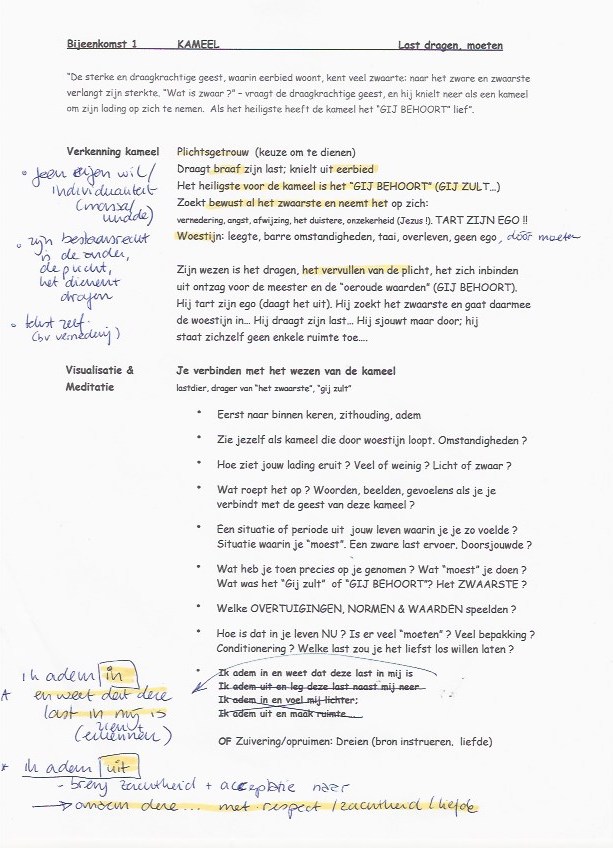 Bijeenkomst 1 KAMEEL Last dragen, moeten
"De sterke en draagkrachtige geest, waarin eerbied woont, kent veel zwaarte: naar het zware en zwaarste
verlangt zijn sterkte. "Wat is zwaar ?" – vraagt de draagkrachtige geest, en hij knielt neer als een kameel
om zijn lading op zich te nemen. Als het heiligste heeft de kameel het "GIJ BEHOORT" lief".
Verkenning kameel Plichtsgetrouw (keuze om te dienen)
Draagt braaf zijn last; knielt uit eerbied
Het heiligste voor de kameel is het "GIJ BEHOORT" (GIJ ZULT...)
Zoekt bewust al het zwaarste en neemt het op zich:
vernedering, angst, afwijzing, het duistere, onzekerheid (Jezus !). TART ZIJN EGO !!
Woestijn: leegte, barre omstandigheden, taai, overleven, geen ego, door moeten
• geen eigen wil/
individualiteit
• zijn bestaansrecht
is de ander,
de plicht,
het dienend
dragen
Zijn wezen is het dragen, het vervullen van de plicht, het zich inbinden
uit ontzag voor de meester en de "oeroude waarden" (GIJ BEHOORT).
Hij tart zijn ego (daagt het uit). Hij zoekt het zwaarste en gaat daarmee
de woestijn in... Hij draagt zijn last... Hij sjouwt maar door; hij
staat zichzelf geen enkele ruimte toe....
zelf.
(bv vernederij)
Visualisatie & Je verbinden met het wezen van de kameel
Meditatie lastdier, drager van "het zwaarste", "gij zult"
* Eerst naar binnen keren, zithouding, adem
* Zie jezelf als kameel die door woestijn loopt. Omstandigheden ?
* Hoe ziet jouw lading eruit ? Veel of weinig ? Licht of zwaar ?
* Wat roept het op ? Woorden, beelden, gevoelens als je je
verbindt met de geest van deze kameel ?
* Een situatie of periode uit jouw leven waarin je je zo voelde ?
Situatie waarin je "moest". Een zware last ervoer. Doorsjouwde ?
* Wat heb je toen precies op je genomen ? Wat "moest" je doen ?
Wat was het "Gij zult" of "GIJ BEHOORT"? Het ZWAARSTE ?
* Welke OVERTUIGINGEN, NORMEN & WAARDEN speelden ?
* Hoe is dat in je leven NU ? Is er veel "moeten" ? Veel bepakking ?
Conditionering ? Welke last zou je het liefst los willen laten ?
* Ik adem in en weet dat deze last in mij is
Ik adem uit en leg deze last naast mij neer
Ik adem in en voel mij lichter;
Ik adem uit en maak ruimte....
OF Zuivering/opruimen: Dreien (bron instrueren, liefde)
Ik adem in
en weet dat deze
last in mij is
(erkennen)
* Ik adem uit
- breng zachtheid + acceptatie naar
→ omarm deze... met respect / zachtheid / liefde